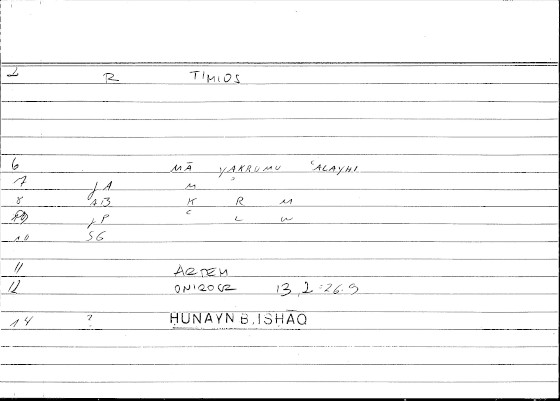 1 R TIMIOS
6 MĀ YAKRUMU ʿALAYHI
7 JA M
8 AB K R M
JP C L W
10 SG
11 ARTEM
12 ONIROCR 13,2=26.9
14 ? ḤUNAYN B. ISḤĀQ